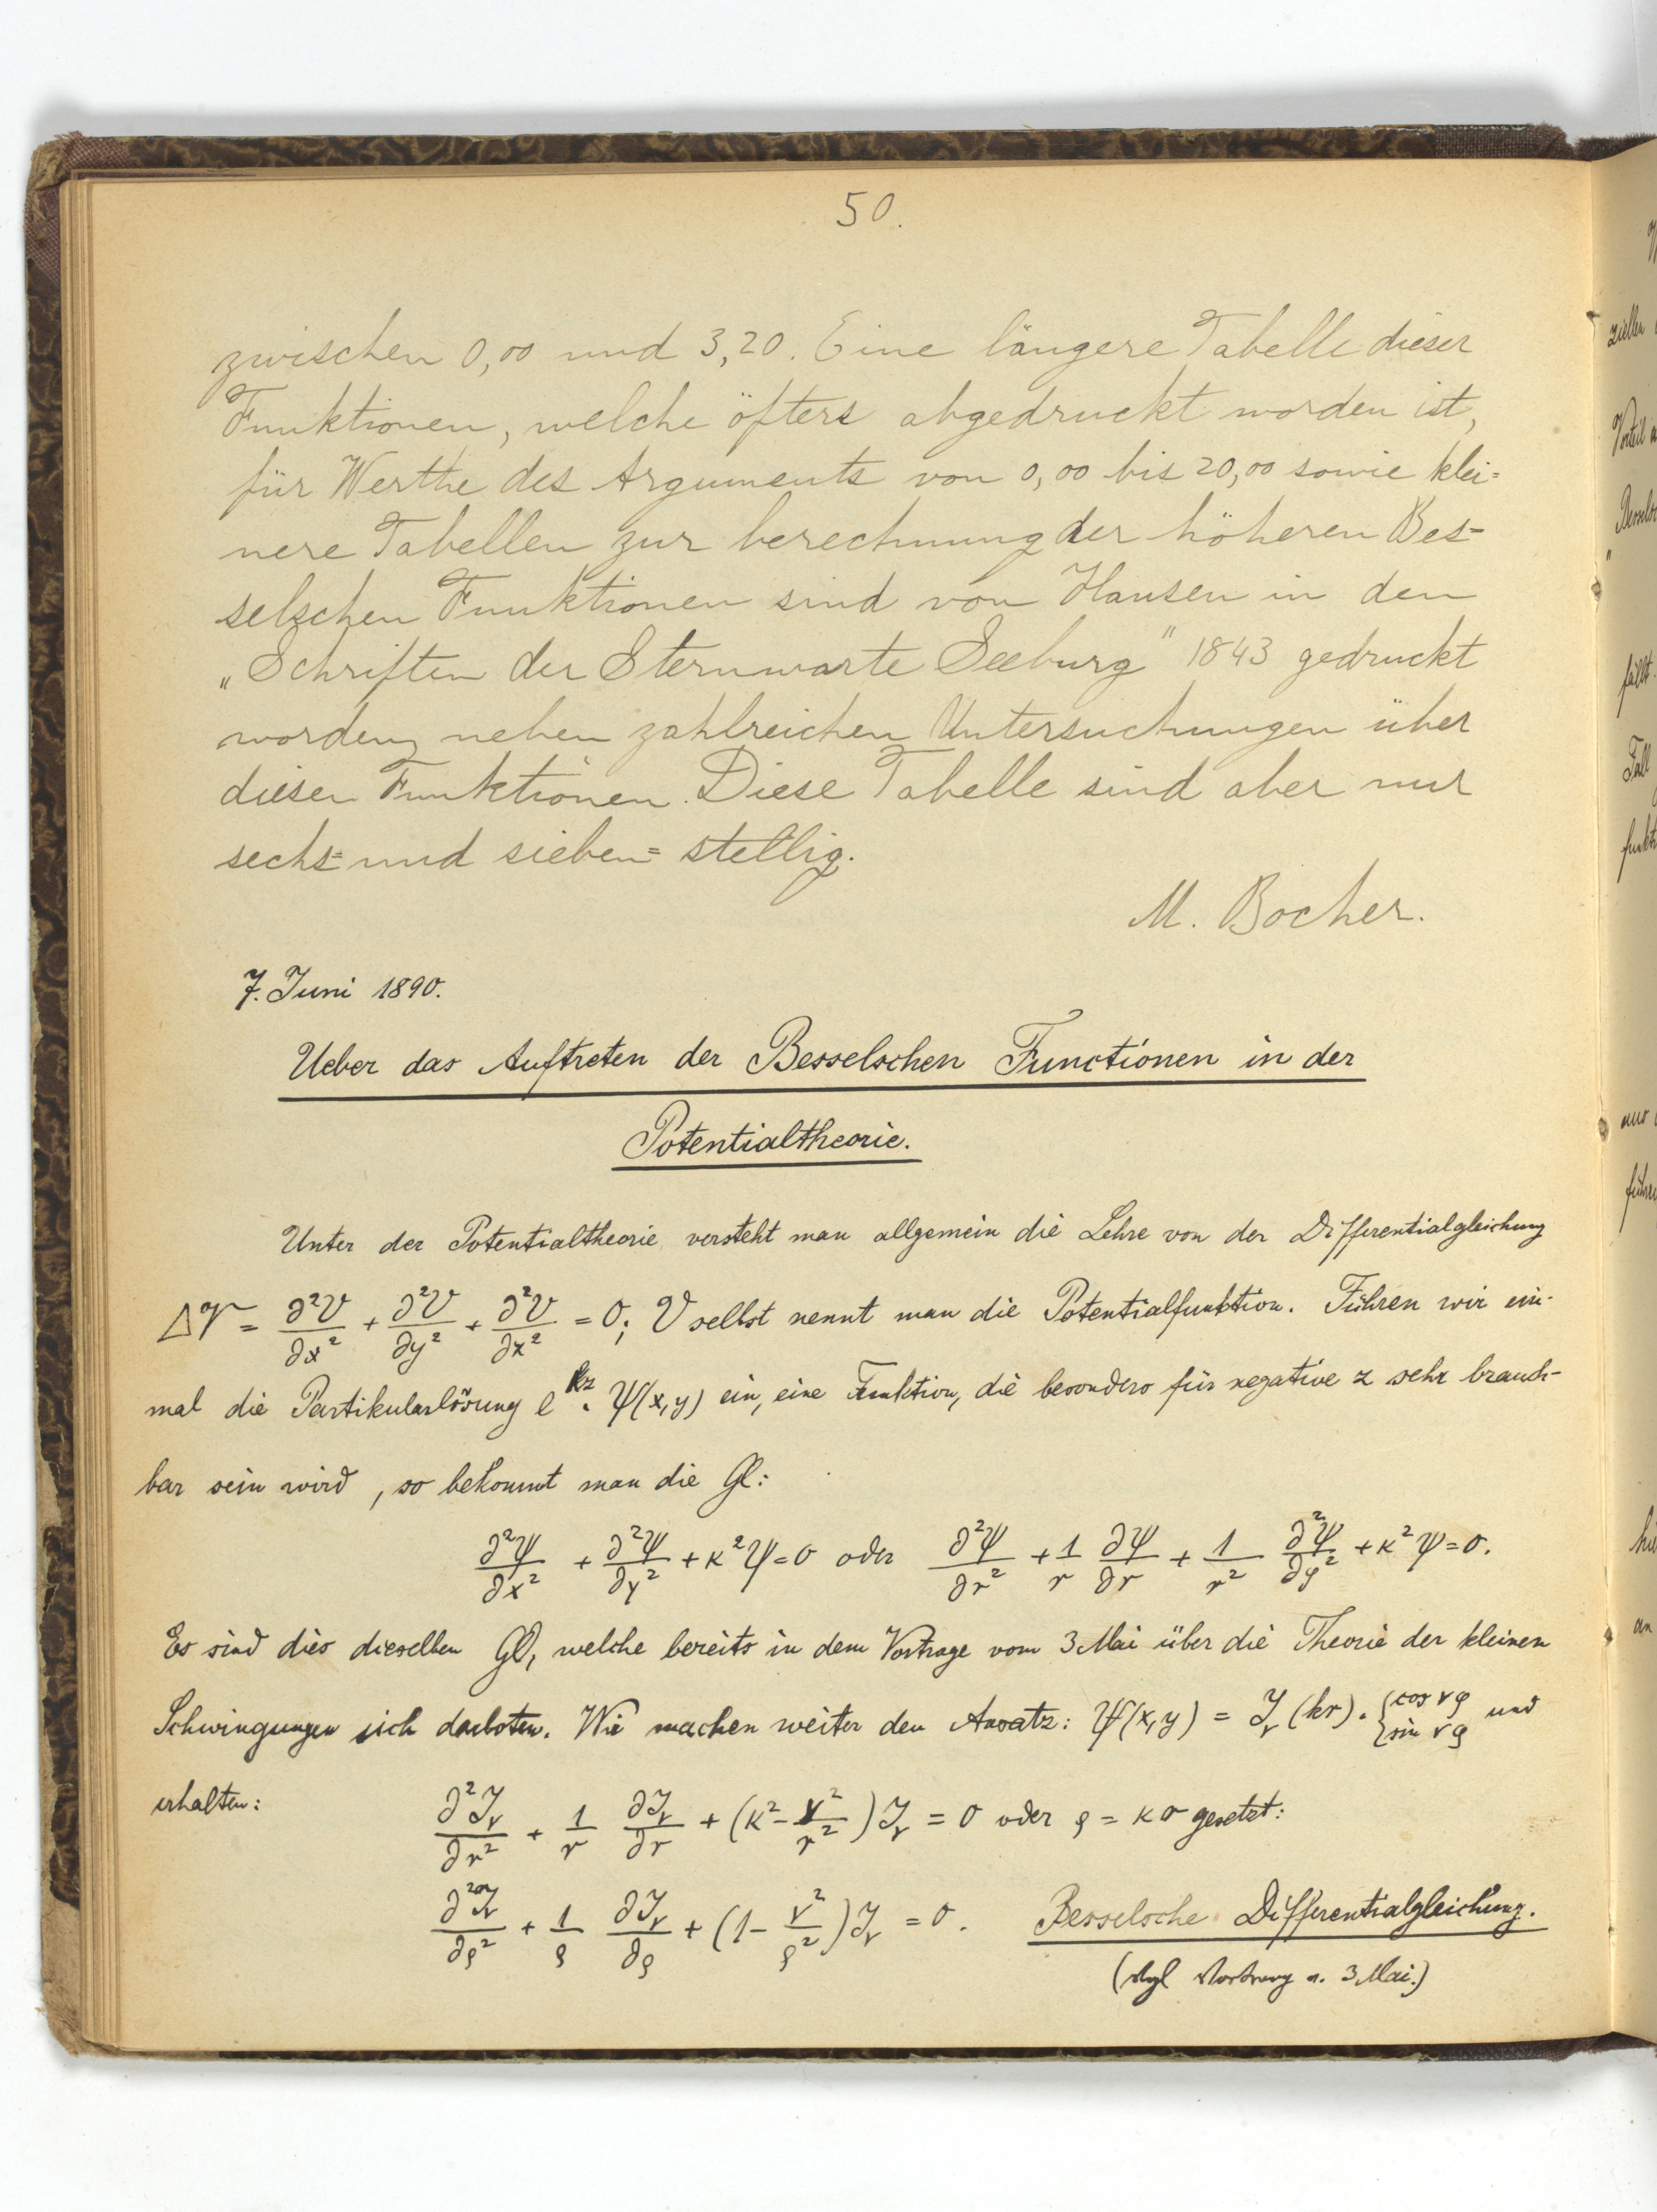 50.
zwischen 0,00 und 3,20. Eine längere Tabelle dieser
Funktionen, welche öfters abgedruckt worden ist,
für Werthe des Arguments von 0,00 bis 20,00 sowie klei=
nere Tabellen zur berechnung der höheren Bes=
selschen Funktionen sind von Hansen in den
„Schriften der Sternwarte Seeburg" 1843 gedruckt
worden, neben zahlreichen Untersuchungen über
diesen Funktionen. Diese Tabelle sind aber nur
sechs= und sieben= stellig.
M. Bocher.
7. Juni 1890.
Ueber das Auftreten der Besselschen Functionen in der
Potentialtheorie.
Unter der Potentialtheorie versteht man allgemein die Lehre von der Differentialgleichung
ΔV = ∂²V/∂x² + ∂²V/∂y² + ∂²V/∂z² = 0; V selbst nennt man die Potentialfunktion. Führen wir ein-
mal die Partikularlösung e^{kz} . ψ(x,y) ein, eine Funktion, die besonders für negative z sehr brauch-
bar sein wird, so bekommt man die Gl:
∂²ψ/∂x² + ∂²ψ/∂y² + k²ψ = 0 oder ∂²ψ/∂r² + 1/r ∂ψ/∂r + 1/r² ∂²ψ/∂φ² + k²ψ = 0.
Es sind dies dieselben Gl, welche bereits in dem Vortrage vom 3 Mai über die Theorie der kleinen
Schwingungen sich darboten. Wir machen weiter den Ansatz: ψ(x,y) = J_ν(kr) . {cos νφ sin νφ und
erhalten: ∂²J_ν/∂r² + 1/r ∂J_ν/∂r + (k² - ν²/r²) J_ν = 0 oder ρ = kr gesetzt:
∂²J_ν/∂ρ² + 1/ρ ∂J_ν/∂ρ + (1 - ν²/ρ²) J_ν = 0. Besselsche Differentialgleichung.
(vgl Vortrag v. 3 Mai.)